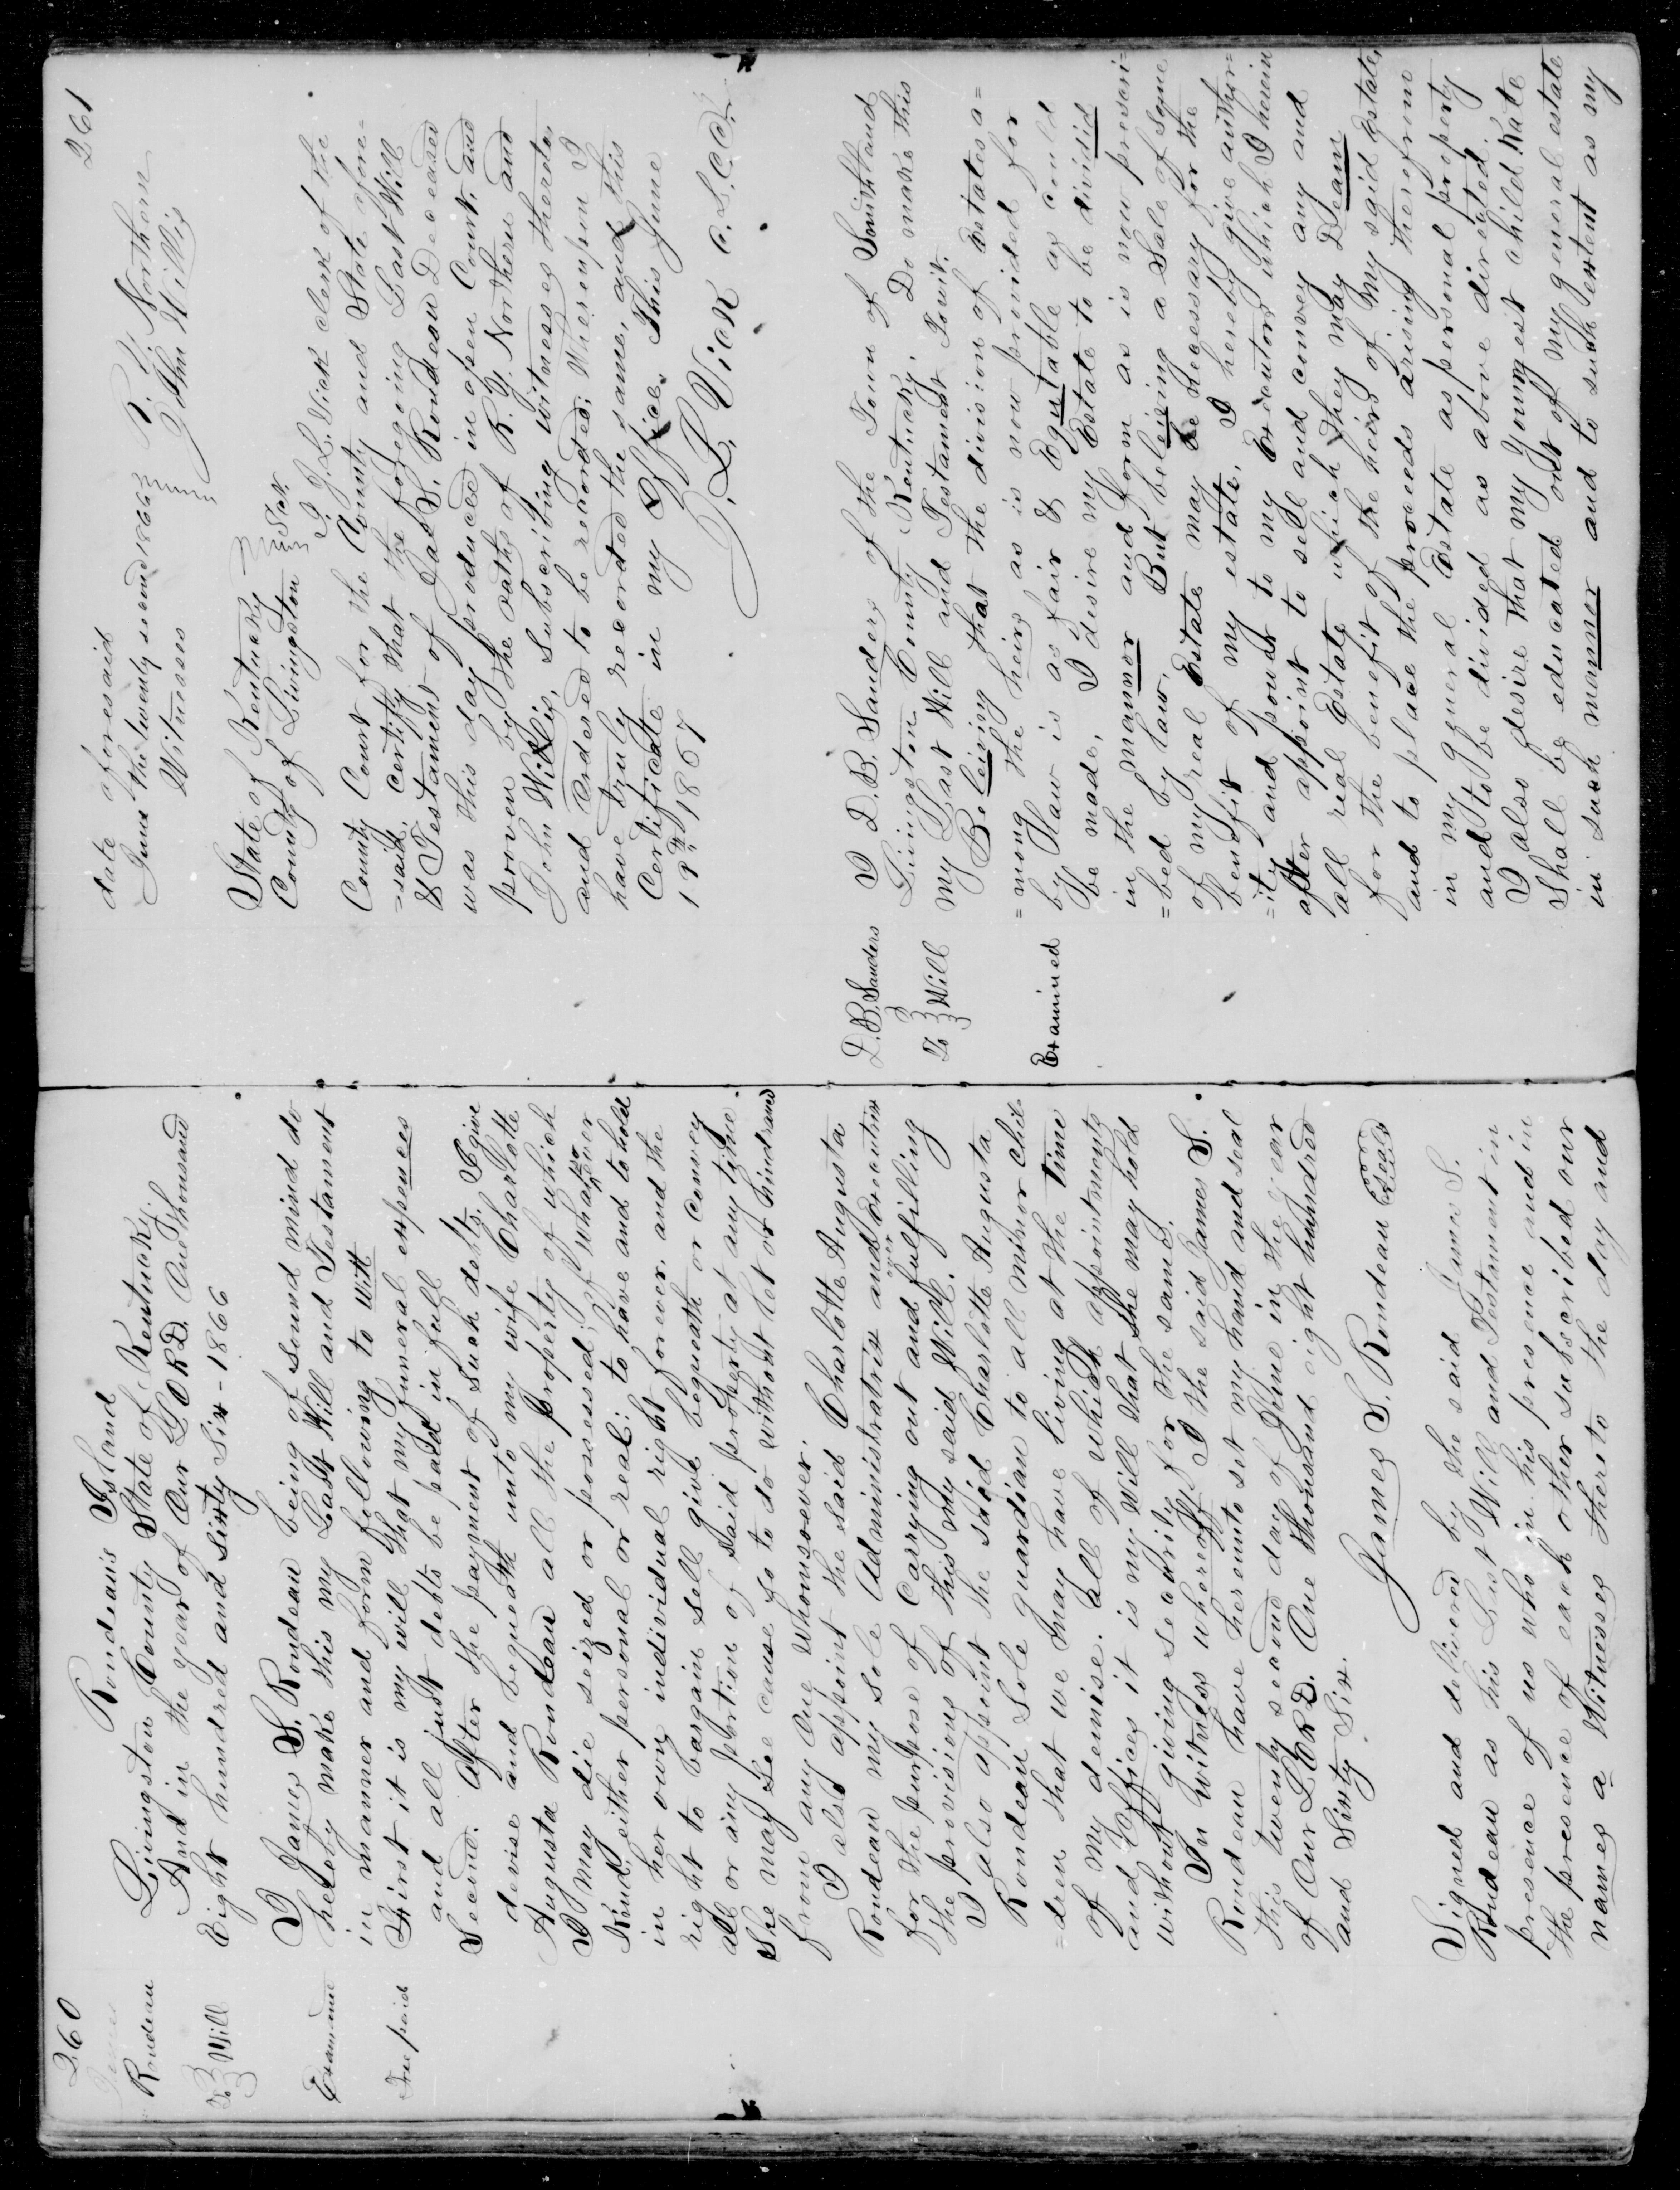 260
James
Rondeau
To Will
Examined
Fee paid
Rondeau's Island
Livingston County State of Kentucky.
And in the year of Our LORD. One thousand
Eight hundred and Sixty Six - 1866
I James S. Rondeau being of sound mind do
hereby make this my Last Will and Testament
in manner and form following to witt
First it is my will that my funeral expences
and all just debts be paid in full
Second. After the payment of Such debts, I give
devise and bequeath unto my wife Charlotte
Augusta Rondeau all the property of which
I may die seized or possessed, of whatsoever
Kind, either personal or real: to have and to hold
in her own individual right forever, and the
right to bargain sell give bequeath or convey
all or any portion of said property at any time
She may See cause so to do without let or hindrance
from any One Whomsoever.
I also appoint the said Charlotte Augusta
Rondeau my sole Administratrix and Executrix
for the purpose of Carrying out and fulfilling
the provisions of this my said Will.
I also appoint the said Charlotte Augusta
Rondeau Sole guardian to all minor chil
=dren that we may have living at the time
of my demise. all of which appointments
and Offices it is my will that she may hold
without giving security for the same.
In witness whereoff I the said James S.
Rondeau have hereunto set my hand and seal
this twenty second day of June in the year
of Our LORD. One thousand eight hundred
and Sixty Six.
James S. Rondeau Seal
Signed and delivered by the said James S.
Rondeau as his Last Will and Testament in
presence of us who in his presence and in
the presence of each other subscribed our
names as Witnesses thereto the day and
261
date aforesaid
June the twenty second 1866 R. Y. Northern
Witnesses John Willis
State of Kentucky
County of Livingston Sct.
I J. L. Vick clerk of the
County Court for the County and State afore=
=said, certify that the foregoing Last Will
& Testament of Jas S. Rondeau Deceased
was this day produced in open Court, and
proven by the oaths of R. Y. Northern and
John Willis, Subscribing witnesses thereto,
and ordered to be recorded; Whereupon I
have truly recorded the same, and this
Certificate in my Office. This June
18th 1867
J. L. Vick C. L. C. C.
D. B. Sanders
To Will
Examined
I D. B. Sanders of the Town of Smithland
Livingston County Kentucky, Do make this
my Last Will and Testament Towit.
Beleiving that the division of Estates a=
=mong the heirs as is now provided for
by Law is as fair & Equtable as could
be made, I desire my Estate to be divided
in the mannor and form as is now prescri=
=bed by law. But beleiving a Sale of Some
of my real Estate may be necessary for the
benefit of my estate, I hereby give author=
=ity and power to my Executors which I herein
after appoint to sell and convey any and
all real Estate which they may Deam
for the benefit of the heirs of my said Estate,
and to place the proceeds arising therefrom
in my general Estate as personal property
and to be divided as above directed.
I also desire that my Youngest child Kate
Shall be educated out of my general estate
in such mannor and to such extent as my